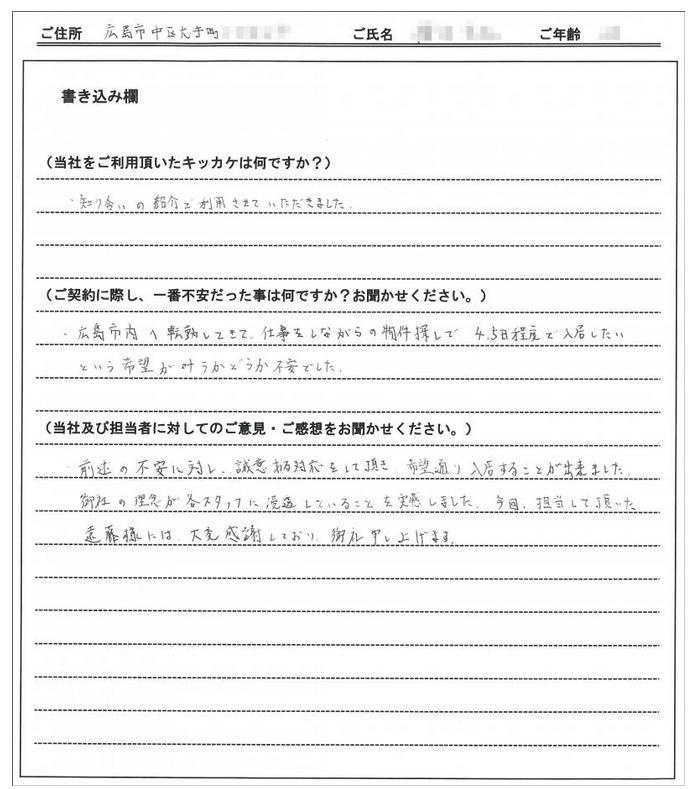 ご住所 広島市中区大手町 ご氏名 ご年齢
書き込み欄
（当社をご利用頂いたキッカケは何ですか？）
・知り合いの紹介で利用させていただきました。
（ご契約に際し、一番不安だった事は何ですか？お聞かせください。）
・広島市内へ転勤してきて、仕事をしながらの物件探しで 4,5日程度で入居したい
という希望が叶うかどうか不安でした。
（当社及び担当者に対してのご意見・ご感想をお聞かせください。）
・前述の不安に対し、誠意ある対応をして頂き、希望通り入居することが出来ました。
御社の理念が各スタッフに浸透していることを実感しました。今回、担当して頂いた
遠藤様には、大変感謝しており、御礼申し上げます。